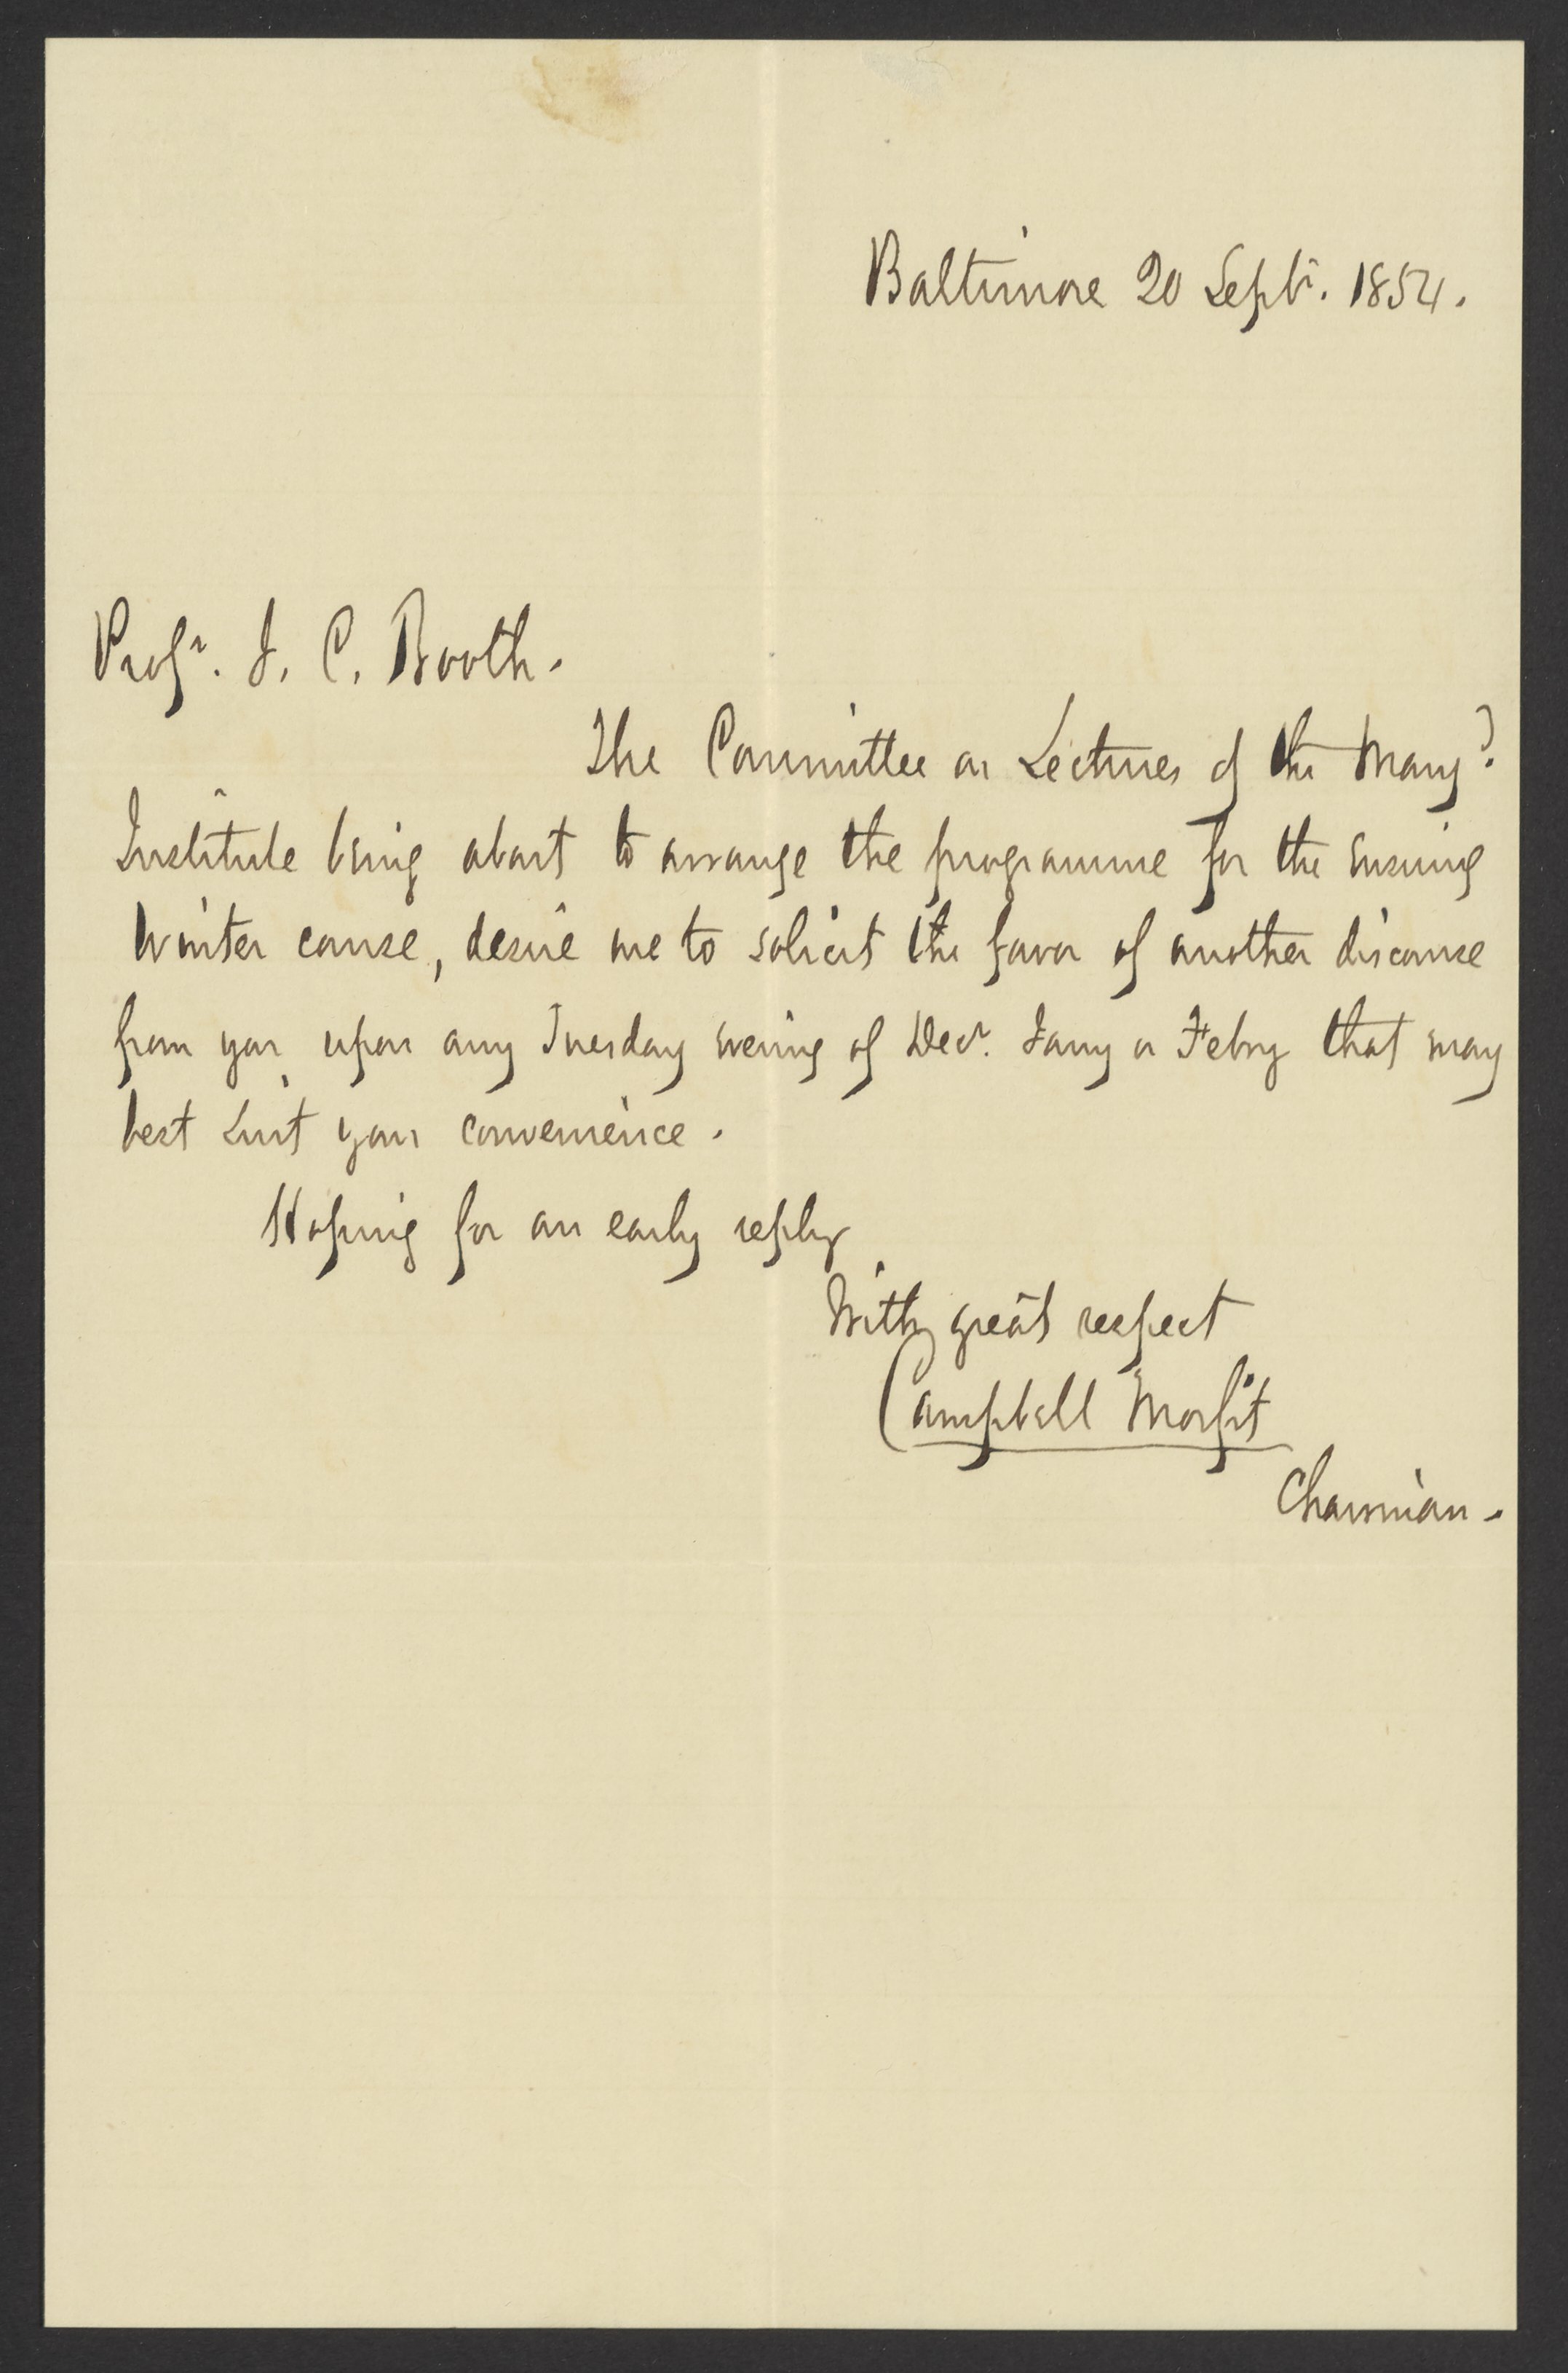 Baltimore 20 Septr. 1854.
Profr. J. C. Booth.
The Committee on Lectures of the Maryd.
Institute being about to arrange the programme for the ensuing
Winter course, desire me to solicit the favor of another discourse
from you upon any Tuesday evening of Decr. Jany or Febry that may
best suit your convenience.
Hoping for an early reply
With great respect
Campbell Morfit
Chairman.